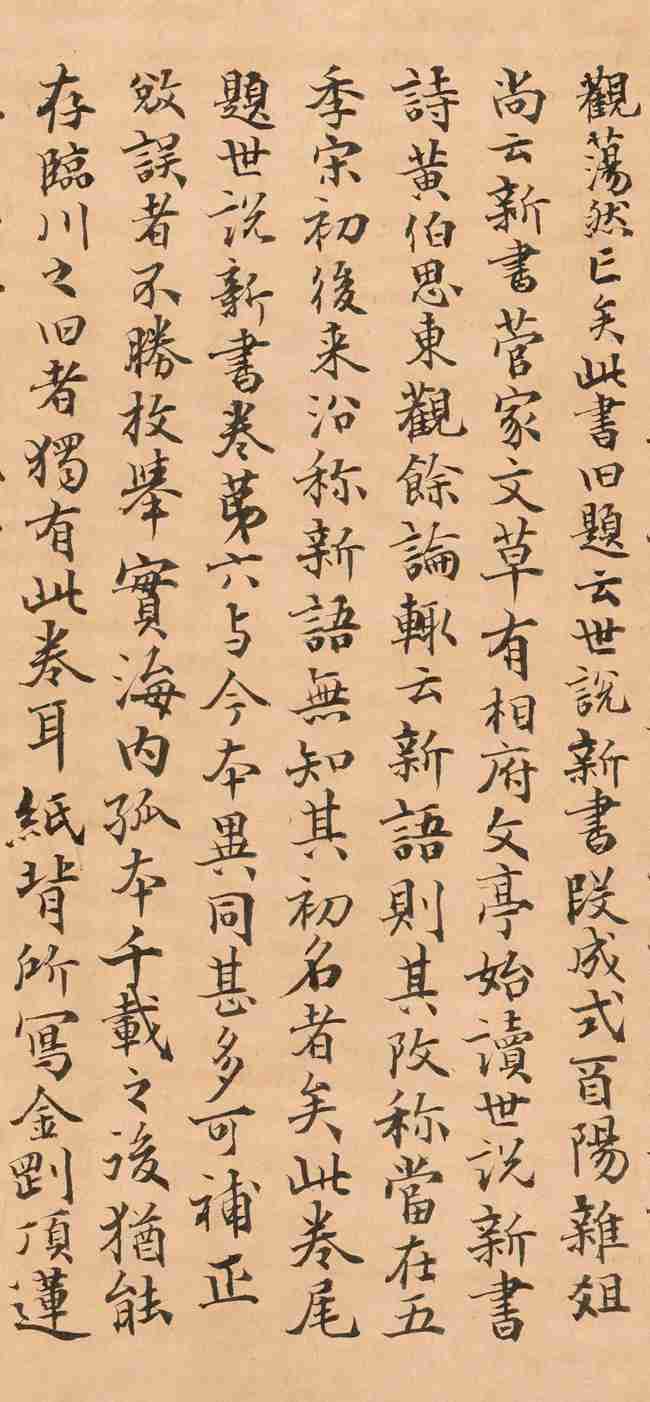 觀蕩然亡矣此書旧題云世說新書段成式酉陽雜俎
尚云新書菅家文草有相府文亭始讀世說新書
詩黃伯思東觀餘論輙云新語則其改称當在五
季宋初後来沿称新語無知其初名者矣此卷尾
題世說新書卷苐六与今本異同甚多可補正
敓誤者不勝枚舉實海內孤本千載之後猶能
存臨川之旧者獨有此卷耳紙背所寫金剛頂蓮